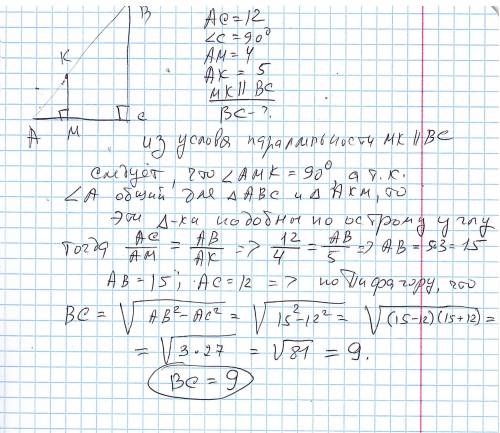 B
AC=12
∠C=90°
AM=4
K
AK = 5
MK || BC
BC-?
A M C
из условия паралельности MK || BC
следует, что ∠AMK = 90°, а т.к.
∠A общий для △ABC и △AKM, то
эти △-ки подобны по острому углу
тогда AC/AM = AB/AK => 12/4 = AB/5 => AB = 5·3 = 15
AB = 15; AC = 12 => по Пифагору, что
BC = √(AB² - AC²) = √(15² - 12²) = √((15-12)(15+12)) =
= √(3·27) = √81 = 9.
BC = 9